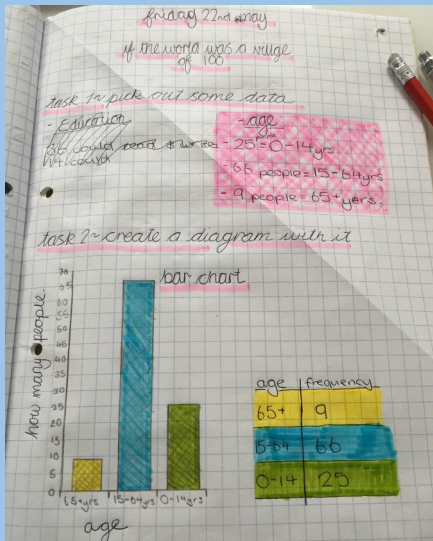 friday 22nd may
if the world was a vilage
of 100
task 1~ pick out some data
- Education
could read & write
- age
- 25 = 0-14yrs
- 66 people = 15-64yrs
- 9 people = 65+ yers.
task 2~ create a diagram with it
bar chart
how many people.
70
65
60
55
50
45
40
35
30
25
20
15
10
5
0
65+yrs 15-64yrs 0-14yrs
age
age frequency
65+ 9
15-64 66
0-14 25